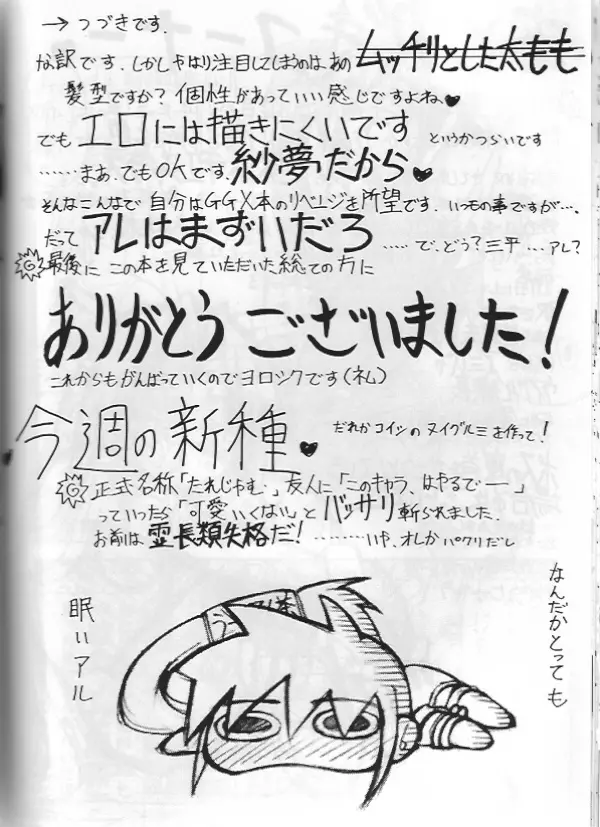 →つづきです.
な訳です.しかしやはり注目してしまうのは、あの ムッチリとした太もも
髪型ですか?個性があっていい感じですよね、♥
でもエロには描きにくいです というかつらいです
……まあ、でもOKです、紗夢だから♥
そんなこんなで自分はGGX本のリベージを所望です.いつもの事ですが….
だって アレはまずいだろ …… で、どう?三平…アレ?
最後に この本を見ていただいた総ての方に
ありがとうございました!
これからもがんばっていくのでヨロシクです(ネム)
今週の新種♥ だれかコイツのヌイグルミを作って!
正式名称「たれじゃむ」友人に「このキャラ、はやるでー」
っていったら「可愛いくない」とバッサリ斬られました.
お前は霊長類失格だ! ………いや、オレがパクリだし
なんだかとっても
眠いアル